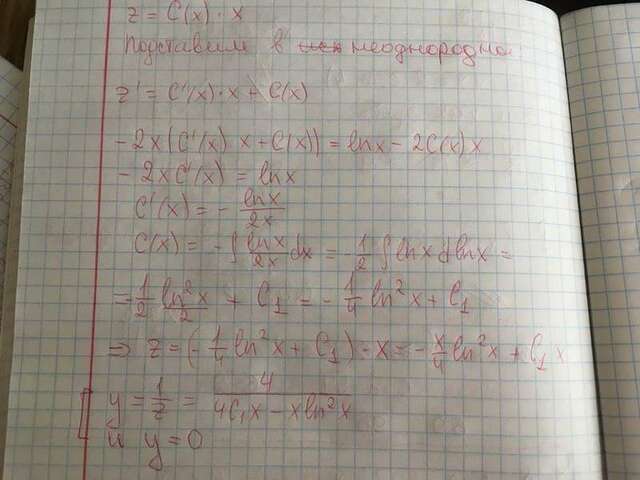 z = C(x) · x
Подставим в неоднородно
z' = C'(x) · x + C(x)
-2x(C'(x) x + C(x)) = ln x - 2C(x) x
-2xC'(x) = ln x
C'(x) = - ln x / 2x
C(x) = - ∫ ln x / 2x dx = - 1/2 ∫ ln x d ln x =
= - 1/2 ln²x / 2 + C₁ = - 1/4 ln²x + C₁
⇒ z = (- 1/4 ln²x + C₁) · x = - x/4 ln²x + C₁ x
y = 1/z = 4 / 4C₁x - x ln²x
и y = 0